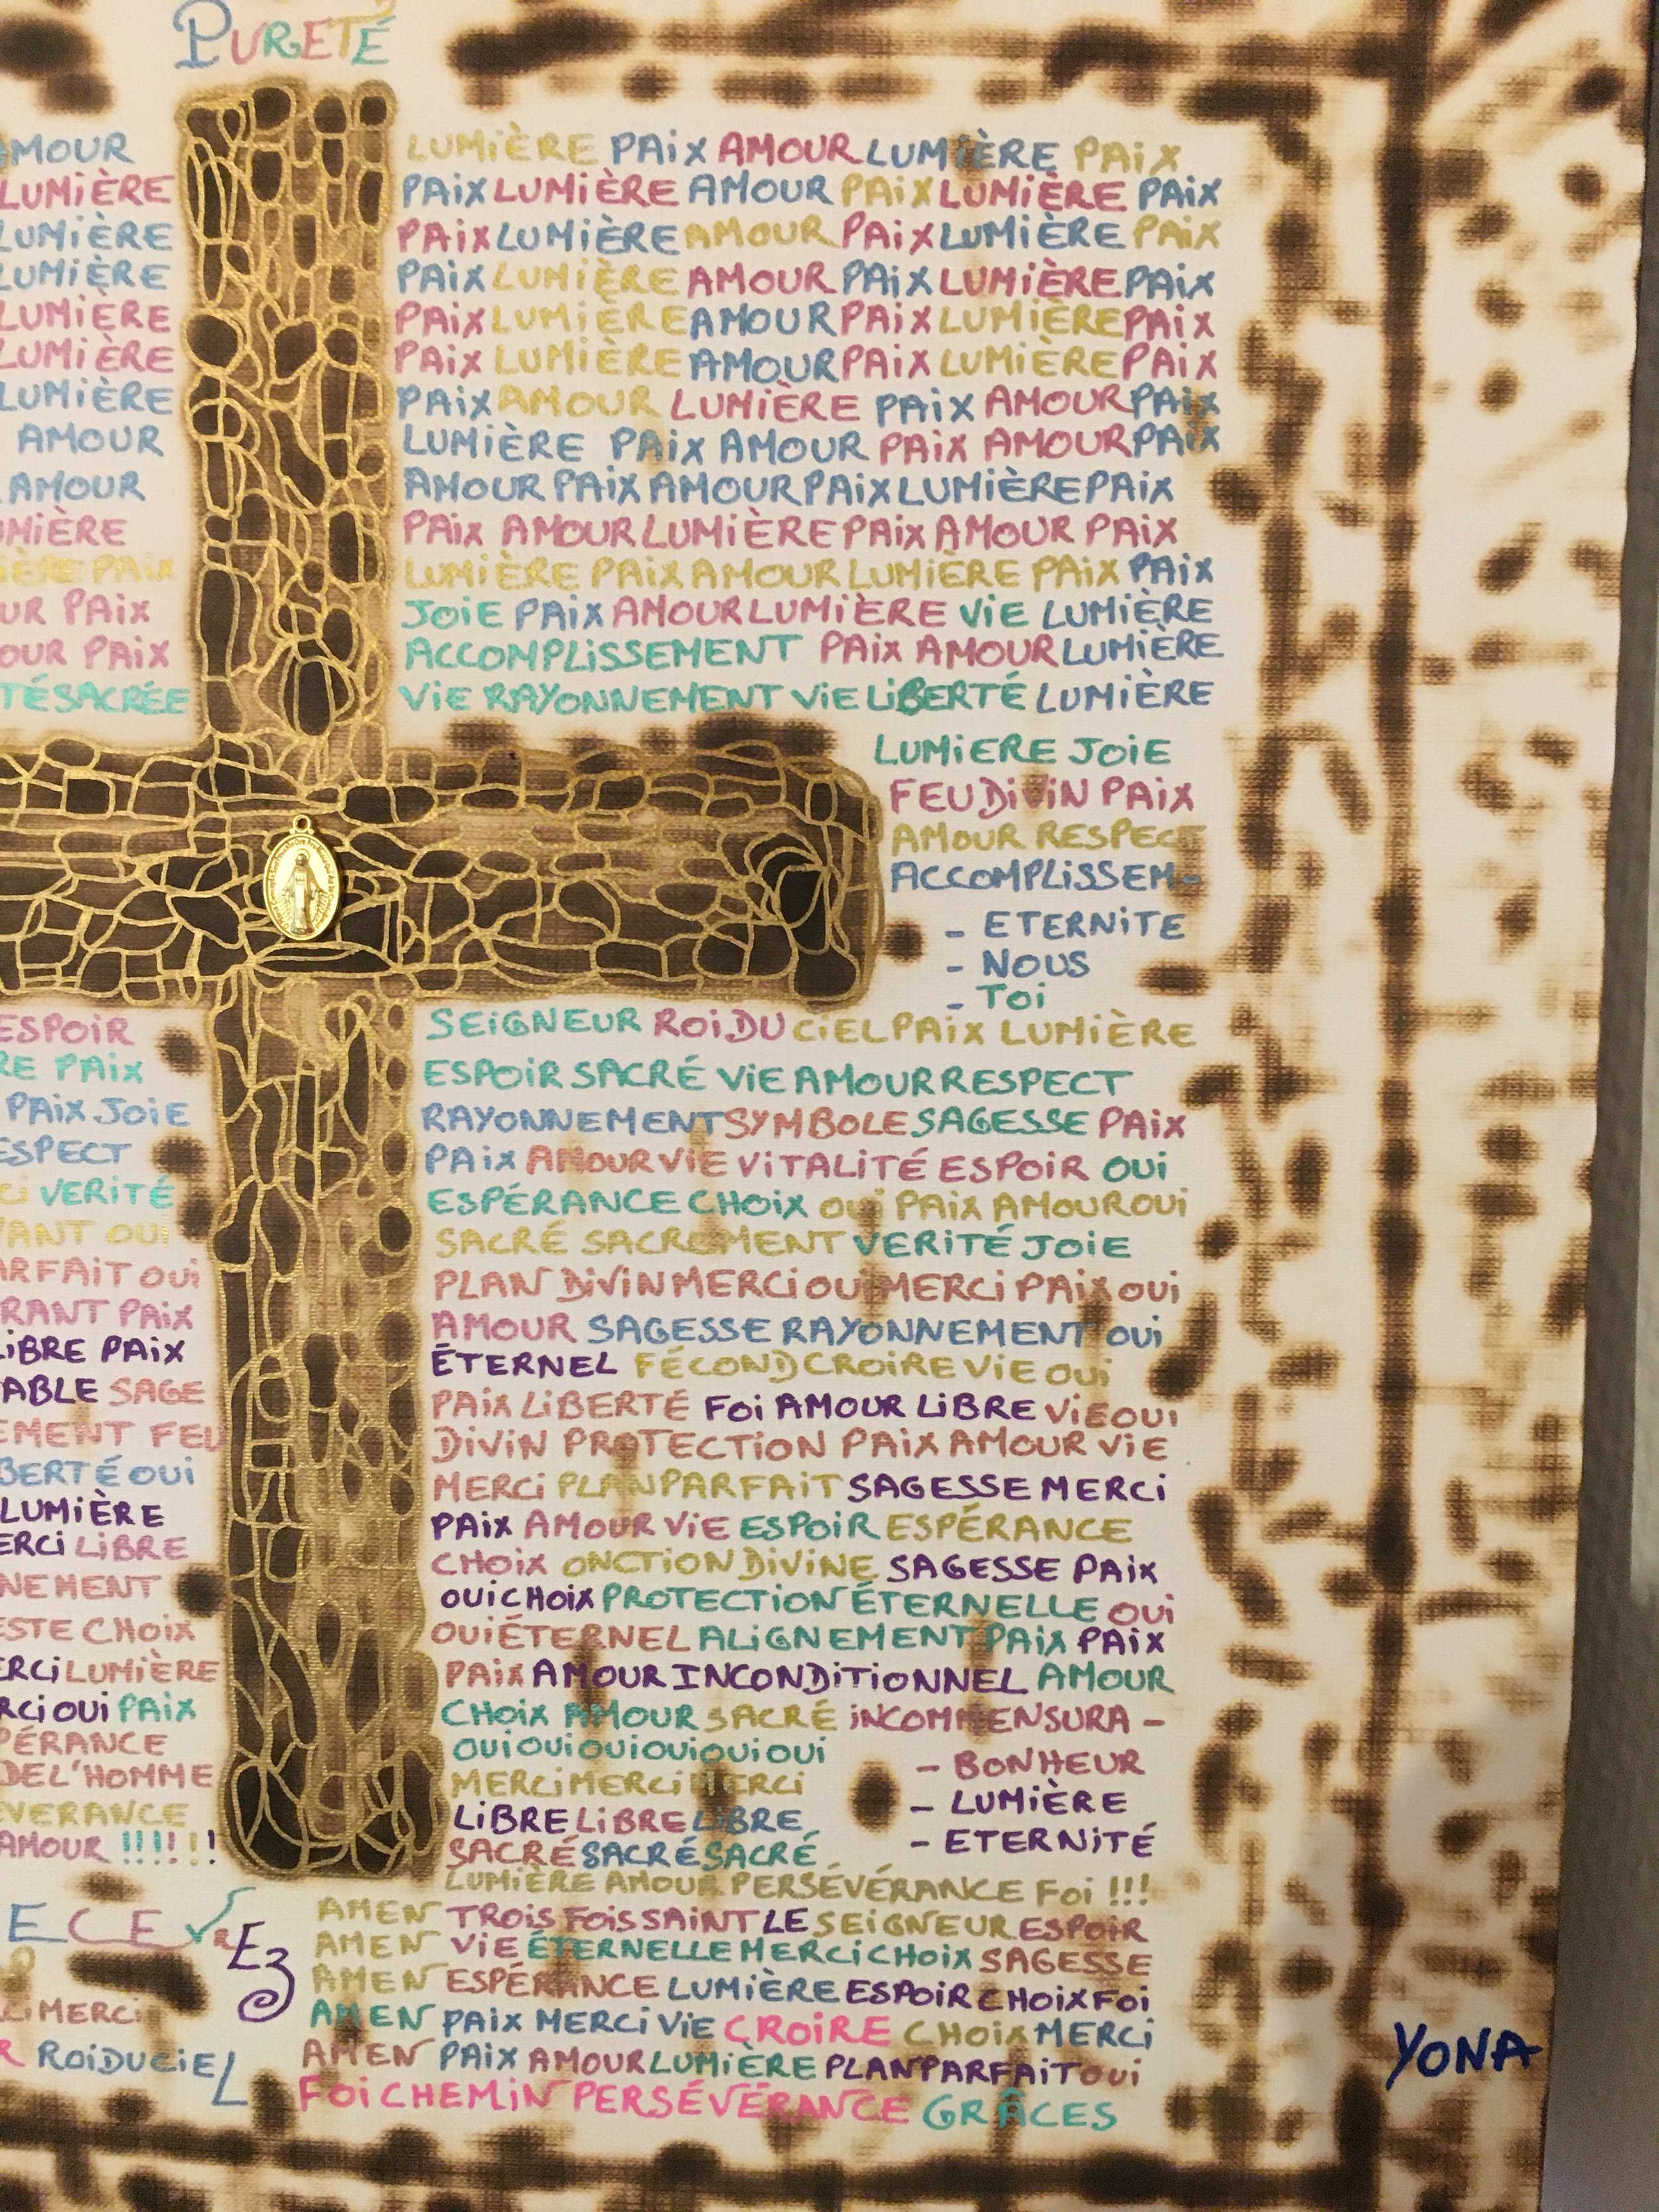 PURETÉ
AMOUR
LUMIÈRE
LUMIÈRE
LUMIÈRE
LUMIÈRE
LUMIÈRE
LUMIÈRE
AMOUR
AMOUR
MIÈRE
IÈRE PAIX
UR PAIX
OUR PAIX
TÉ SACRÉE
LUMIÈRE PAIX AMOUR LUMIÈRE PAIX
PAIX LUMIÈRE AMOUR PAIX LUMIÈRE PAIX
PAIX LUMIÈRE AMOUR PAIX LUMIÈRE PAIX
PAIX LUMIÈRE AMOUR PAIX LUMIÈRE PAIX
PAIX LUMIÈRE AMOUR PAIX LUMIÈRE PAIX
PAIX LUMIÈRE AMOUR PAIX LUMIÈRE PAIX
PAIX AMOUR LUMIÈRE PAIX AMOUR PAIX
LUMIÈRE PAIX AMOUR PAIX AMOUR PAIX
AMOUR PAIX AMOUR PAIX LUMIÈRE PAIX
PAIX AMOUR LUMIÈRE PAIX AMOUR PAIX
LUMIÈRE PAIX AMOUR LUMIÈRE PAIX PAIX
JOIE PAIX AMOUR LUMIÈRE VIE LUMIÈRE
ACCOMPLISSEMENT PAIX AMOUR LUMIÈRE
VIE RAYONNEMENT VIE LIBERTÉ LUMIÈRE
LUMIERE JOIE
FEU DIVIN PAIX
AMOUR RESPECT
ACCOMPLISSEM-
- ETERNITE
- NOUS
- TOI
ESPOIR
RE PAIX
PAIX JOIE
ESPECT
CI VERITÉ
VANT OUI
ARFAIT OUI
RANT PAIX
LIBRE PAIX
ABLE SAGE
EMENT FEU
BERTÉ OUI
LUMIÈRE
ERCI LIBRE
NEMENT
ESTE CHOIX
ERCI LUMIÈRE
RCI OUI PAIX
PÉRANCE
DE L'HOMME
EVERANCE
AMOUR !!!!!!
SEIGNEUR ROI DU CIEL PAIX LUMIÈRE
ESPOIR SACRÉ VIE AMOUR RESPECT
RAYONNEMENT SYMBOLE SAGESSE PAIX
PAIX AMOUR VIE VITALITÉ ESPOIR OUI
ESPÉRANCE CHOIX OUI PAIX AMOUR OUI
SACRÉ SACREMENT VERITÉ JOIE
PLAN DIVIN MERCI OUI MERCI PAIX OUI
AMOUR SAGESSE RAYONNEMENT OUI
ÉTERNEL FÉCOND CROIRE VIE OUI
PAIX LIBERTÉ FOI AMOUR LIBRE VIE OUI
DIVIN PROTECTION PAIX AMOUR VIE
MERCI PLAN PARFAIT SAGESSE MERCI
PAIX AMOUR VIE ESPOIR ESPÉRANCE
CHOIX ONCTION DIVINE SAGESSE PAIX
OUI CHOIX PROTECTION ÉTERNELLE OUI
OUI ÉTERNEL ALIGNEMENT PAIX PAIX
PAIX AMOUR INCONDITIONNEL AMOUR
CHOIX AMOUR SACRÉ INCOMMENSURA-
OUI OUI OUI OUI OUI OUI
MERCI MERCI MERCI
LIBRE LIBRE LIBRE
SACRÉ SACRÉ SACRÉ
- BONHEUR
- LUMIÈRE
- ETERNITÉ
LUMIÈRE AMOUR PERSÉVÉRANCE FOI !!!
AMEN TROIS FOIS SAINT LE SEIGNEUR ESPOIR
AMEN VIE ÉTERNELLE MERCI CHOIX SAGESSE
AMEN ESPÉRANCE LUMIÈRE ESPOIR CHOIX FOI
AMEN PAIX MERCI VIE CROIRE CHOIX MERCI
AMEN PAIX AMOUR LUMIÈRE PLAN PARFAIT OUI
FOI CHEMIN PERSÉVÉRANCE GRÂCES
ECE
CI MERCI
R ROI DU CIEL
YONA